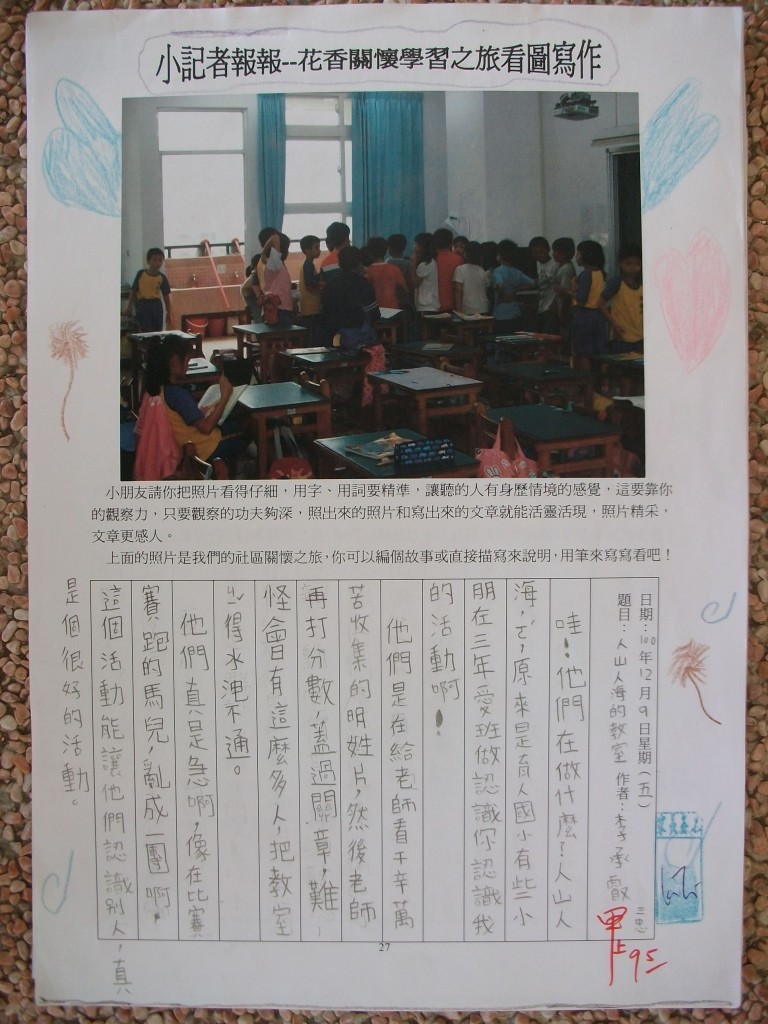 小記者報報--花香關懷學習之旅看圖寫作
小朋友請你把照片看得仔細，用字、用詞要精準，讓聽的人有身歷情境的感覺，這要靠你
的觀察力，只要觀察的功夫夠深，照出來的照片和寫出來的文章就能活靈活現，照片精采，
文章更感人。
上面的照片是我們的社區關懷之旅，你可以編個故事或直接描寫來說明，用筆來寫寫看吧！
日期：100年12月9日星期(五)
題目：人山人海的教室 作者：李承叡
三忠
哇！他們在做什麼？人山人
海，ㄜ，原來是育人國小有些小
朋在三年愛班做認識你認識我
的活動啊！
他們是在給老師看千辛萬
苦收集的明姓片，然後老師
再打分數，蓋過關章，難
怪會有這麼多人，把教室
得水洩不通。
他們真是急啊，像在比賽
賽跑的馬兒，亂成一團啊，
這個活動能讓他們認識別人，真
是個很好的活動。
甲上 95
27